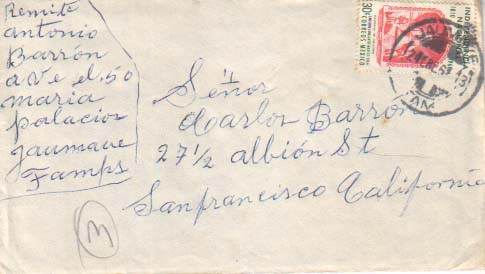 Remite
antonio
Barrón
ave el 50
maria
palacios
Jaumave
Tamps
30¢ CORREOS MEXICO
Señor
Carlos Barron
27½ albión St
Sanfrancisco California
3